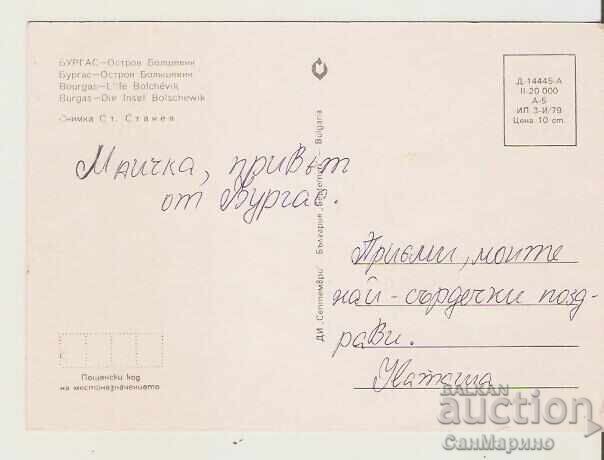 БУРГАС—Остров Болшевик
Бургас—Остров Большевик
Bourgas—L'île Bolchévik
Burgas—Die Insel Bolschewik
Снимка Ст. Станев
Д-14445-А
II-20 000
А-5
ИП 3-И/79
Цена 10 ст.
Маичка, привът
от Бургас.
ДИ „Септември" България „Septemvri" — Bulgaria
Приеми, моите
най-сърдечни позд-
рави.
Наташа
Пощенски код
на местоназначението
BALKAN
auction
СанМарино